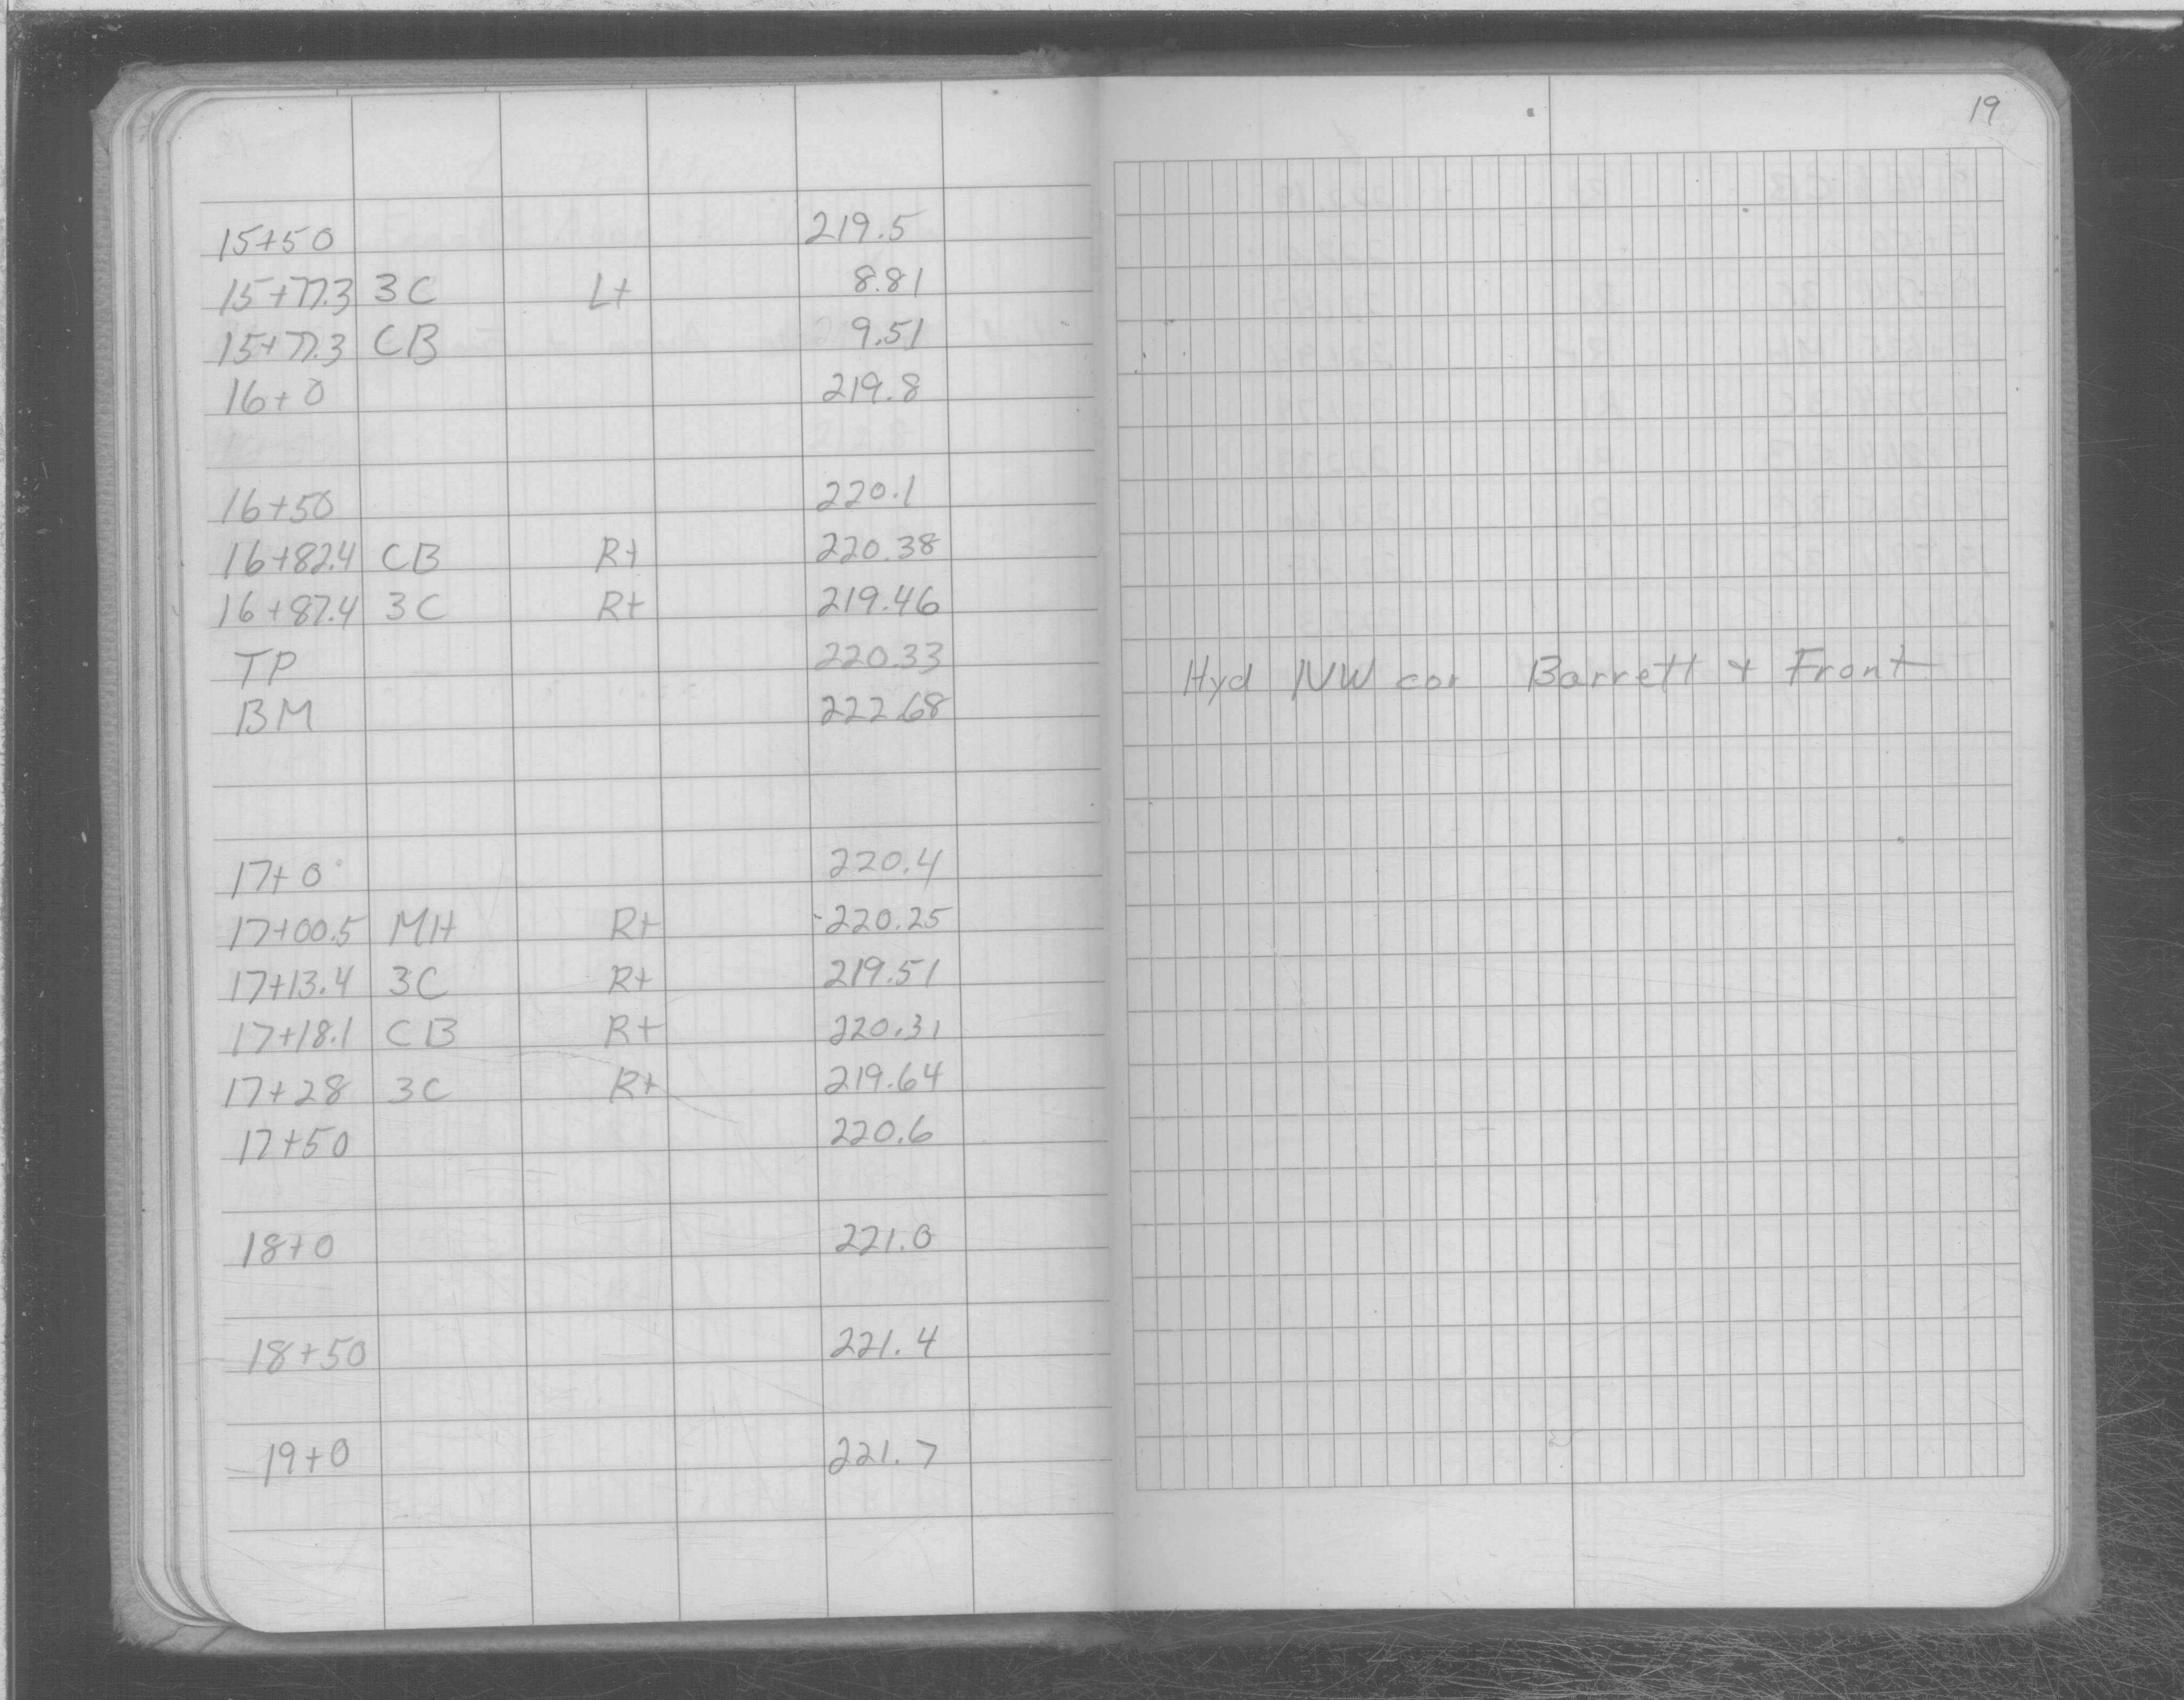 19
15+50 219.5
15+77.3 3C Lt 8.81
15+77.3 CB 9.51
16+0 219.8
16+50 220.1
16+82.4 CB Rt 220.38
16+87.4 3C Rt 219.46
TP 220.33 Hyd NW cor Barrett + Front
BM 222.68
17+0 220.4
17+00.5 MH Rt 220.25
17+13.4 3C Rt 219.51
17+18.1 CB Rt 220.31
17+28 3C Rt 219.64
17+50 220.6
18+0 221.0
18+50 221.4
19+0 221.7